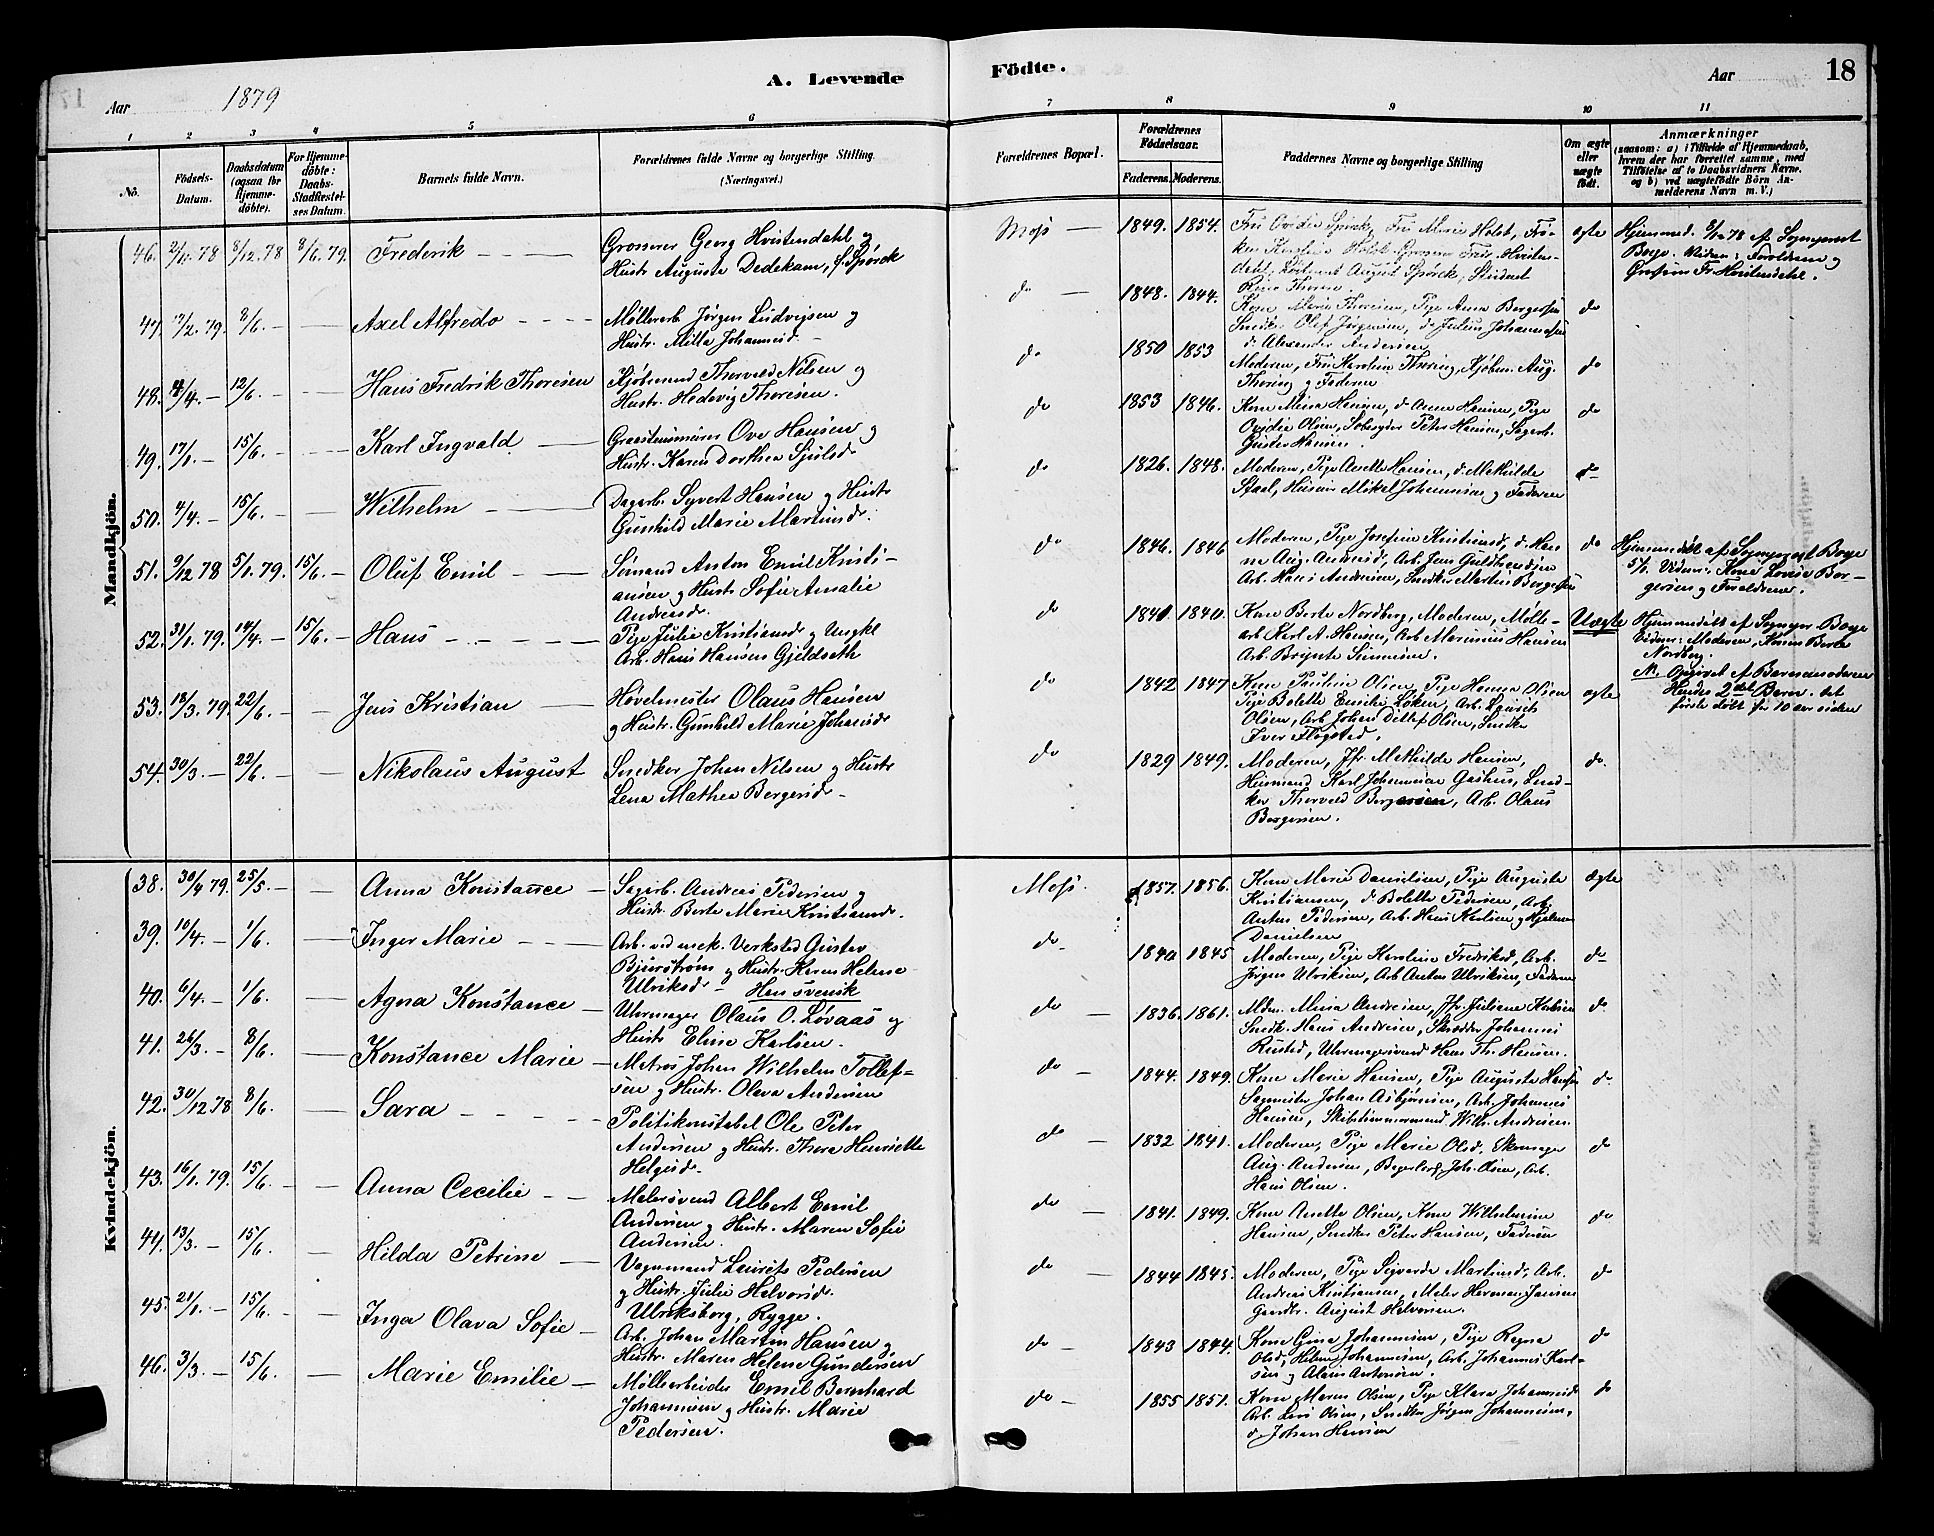 A. Levende
Aar 1879
1 2 3 4 5 6
No. Födsels-Datum. Daabsdatum (ogsaa for Hjemme-döbte). For Hjemme-döbte: Daabs-Stadfæstel-ses Datum. Barnets fulde Navn. Forældrenes fulde Navne og borgerlige Stilling. (Næringsvei.)
Mandkjön.
46. 2/11.78 8/12.78 8/6.79. Frederik Grosserer Georg Hvistendahl og
Hustr Augusta Dedekam, f. Spörck
47. 13/2.79. 8/6. Axel Alfredo Möllerarb. Jörgen Ludvigsen og
Hustr. Milla Johannesd.
48. 12/6. Hans Fredrik Thoresen Kjöbmand Thorvald Nilsen og
Hustr. Hedevig Thoresen.
49. 17/1. 15/6. Karl Ingvald Graastensmurer Ove Hansen og
Hustr. Karen Dorthea Sjulsd.
50. 4/4. 15/6. Wilhelm Dagarb. Syvert Hansen og Hustr
Gunhild Marie Martinsd.
51. 9/12 78 5/1.79. 15/6. Oluf Emil Sömand Anton Emil Kristi-
ansen og Hustr Sofie Amalie
Andersd.
52. 31/1.79. 14/4. 15/6. Hans Pige Julie Kristiansd og Ungkl
Arb. Hans Hansen Gjeldseth
53. 13/3.79. 22/6. Jens Kristian Hövelmester Olaus Hansen
og Hustr. Gunhild Marie Johansd
54. 30/3. 22/6. Nikolaus August Snedker Johan Nilsen og Hustr
Lena Mathea Bergersd.
Kvindekjön.
38. 30/4 79. 25/5. Anna Konstance Sagarb. Andreas Pedersen og
Hustr. Berte Marie Kristiansd.
39. 10/4. 1/6. Inger Marie Arb. ved mek. Verksted Gustav
Bjurström og Hustr. Karen Helene
Ulriksd. Han svensk
40. 6/4. 1/6. Agna Konstance Uhrmager Olaus O. Lövaas og
Hustr Eline Karlsen.
41. 26/3. 8/6. Konstance Marie Matros Johan Wilhelm Tollef-
sen og Hustr. Olava Andersen
42. 30/12 78 8/6. Sara Politikonstabel Ole Peter
Andersen og Hustr. Thora Henriette
Helgesd.
43. 16/1.79. 15/6. Anna Cecilie Malersvend Albert Emil
Andersen og Hustr. Maren Sofie
Andersen.
44. 13/3. 15/6. Hilda Petrine Vognmand Laurits Pedersen
og Hustr. Julie Halvorsd.
Ulriksborg, Rygge.
45. 21/1. 15/6. Inga Olava Sofie Arb. Johan Martin Hansen og
Hustr. Maren Helene Gundersen
46. 3/3. 15/6. Marie Emilie Möllearbeider Emil Bernhard
Johannesen og Hustr. Marie
Pedersen.
Födte.
Aar 18
7 8 9 10 11
Forældrenes Bopæl. Forældrenes Födselsaar. Faderens. Moderens. Faddernes Navne og borgerlige Stilling Om ægte eller uægte födt. Anmærkninger (saasom: a) i Tilfælde af Hjemmedaab, hvem der har forrettet samme, med Tilföielse af to Daabsvidners Navne, og b) ved uægtefödte Börn An-melderens Navn m. V.)
Moss 1849. 1854. Fru Ovidia Spörck, Fru Marie Holst, Frö-
ken Karoline Holst, Grosserer Fredr. Hvisten-
dahl, Löitnant August Spörck, Student
ægte Hjemmed. 8/12 78 af Sognepræst
Borge. Vidner: Forældrene og
Grosserer Fr. Hvistendahl.
do 1848. 1844. Kone Marie Thoresen, Pige Anna Bergersen
Snedk. Olaf Jörgensen, do Julius Johannesen
do Alexander Andersen do
do 1850 1853 Moderen, Fru Karoline Thoring, Kjöbm. Aug.
Thoring og Faderen do
do 1853 1846. Kone Mina Hansen, do Anne Hansen, Pige
Ovidia Olsen, Peter Hansen, Sagarb.
Gustav Hansen. do
do 1826. 1848. Moderen, Pige Anette Hansen, do Mathilde
Stael, Husm. Mikal Johannesen og Faderen do
do 1846. 1846 Moderen, Pige Josefine Kristiansd, do Han-
na Aug. Andersd, Arb. Jens Guldbrandsen
Arb. Hans Andersen, Snedker Martin Bergersen do
Hjemmedöbt af Sognepræst Borge
5/1. Vidner: Kone Lovise Ber-
gersen og Forældrene.
do 1841 1840. Kone Berte Nordberg, Moderen, Mölle-
arb Karl A. Hansen, Arb Marinius Hansen
Arb. Brynte Simensen. Uægte
Hjemmedöbt af Sognepr Borge
Vidner: Moderen, Konen Berte
Nordberg.
N. Opgivet af Barnemoderen
Hendes 2det Barn. det
förste födt for 10 aar siden
do 1842 1847 Kone Pauline Olsen, Pige Hanna Olsen
Pige Bolette Emilie Löken, Arb. Laurits
Olsen, Arb. Johan Detlef Olsen, Snedker
Iver Flögstad. ægte
do 1829 1849. Moderen, Jfr. Mathilde Hansen,
Husmand Karl Johannesen Gashus, Sned-
ker Thorvald Bergersen, Arb. Olaus
Bergersen. do.
Moss. 1857. 1856. Kone Marie Danielsen, Pige Auguste
Kristiansen, do Bolette Pedersen, Arb.
Anton Pedersen, Arb. Hans Karlsen og Hjalmar
Danielsen Ægte
do 1840 1845 Moderen, Pige Karoline Fredriksd, Arb.
Jörgen Ulriksen, Arb Anton Ulriksen, Faderen do
do 1836. 1861. Mdm. Mina Andersen, Jfr. Juliane Karlsen
Snedk. Hans Andersen, Skrædder Johannes
Rustad, Uhrmagersvend Hans Th. Hansen. do
do 1844. 1849. Kone Marie Hansen, Pige Augusta Hansen
Sagmester Johan Asbjörnsen, Arb. Johannes
Hansen, Skibstömmermand Wilh. Andersen do
do 1832 1841. Moderen, Pige Marie Olsd, Skomager
Aug. Andersen, Joh. Olsen, Arb.
Hans Olsen. do
do 1841. 1849. Kone Anette Olsen, Kone Wilhelmine
Hansen, Snedker Peter Hansen, Faderen do
do 1844 1845. Moderen, Pige Sigvarda Martinsd, Arb.
Andreas Kristiansen, Maler Herman Jansen
Gaardbr. August Halvorsen. do
do 1843 1844. Kone Gina Johannesen, Pige Regna
Olsd, Helene Johannesen, Arb. Johannes Karl-
sen og Alaus Antonsen. do
do 1855 1851. Kone Maren Olsen, Pige Klara Johannesd
Arb. Lars Olsen, Snedker Jörgen Johannesen,
do Johan Hansen do